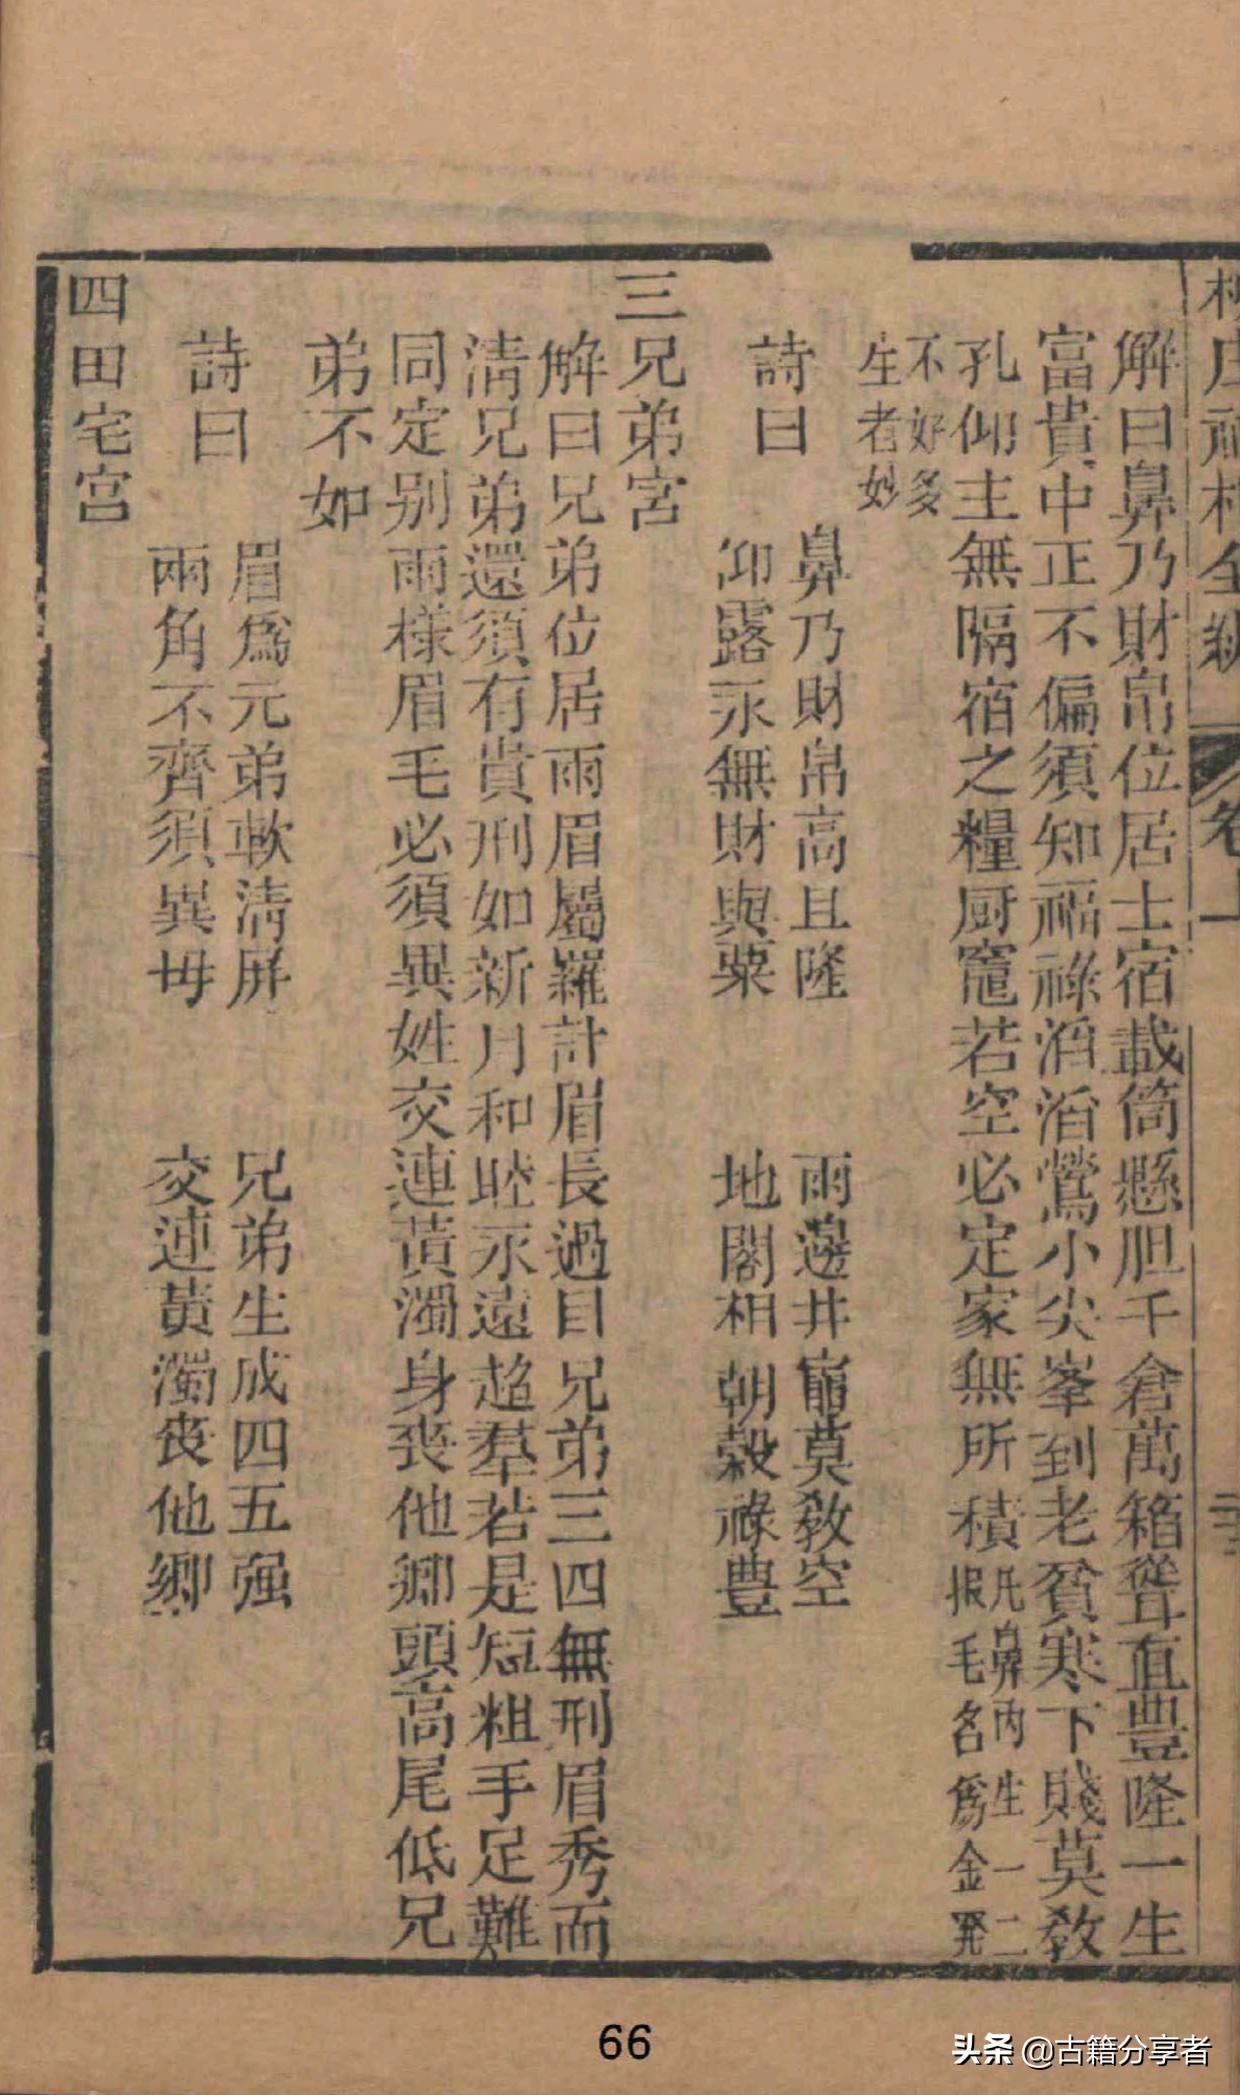 解曰鼻乃財帛位居土宿截筒懸胆千倉萬箱聳直豊隆一生
富貴中正不偏須知福祿滔滔鶯小尖峯到老貧寒下賤莫教
孔仰主無隔宿之糧厨竈若空必定家無所積凡鼻内生一二
根毛名爲金
不好多
生者妙
詩曰
鼻乃財帛高且隆 兩邊井竈莫教空
仰露永無財與粟 地閣相朝穀祿豊
三兄弟宮
解曰兄弟位居兩眉屬羅計眉長過目兄弟三四無刑眉秀而
淸兄弟還須有貴刑如新月和睦永遠超羣若是短粗手足難
同定別兩樣眉毛必須異姓交連黃濁身丧他鄉頭高尾低兄
弟不如
詩曰
眉爲元弟軟淸屏 兄弟生成四五强
兩角不齊須異毋 交連黃濁丧他鄉
四田宅宮
卷上
66
头条 @古籍分享者